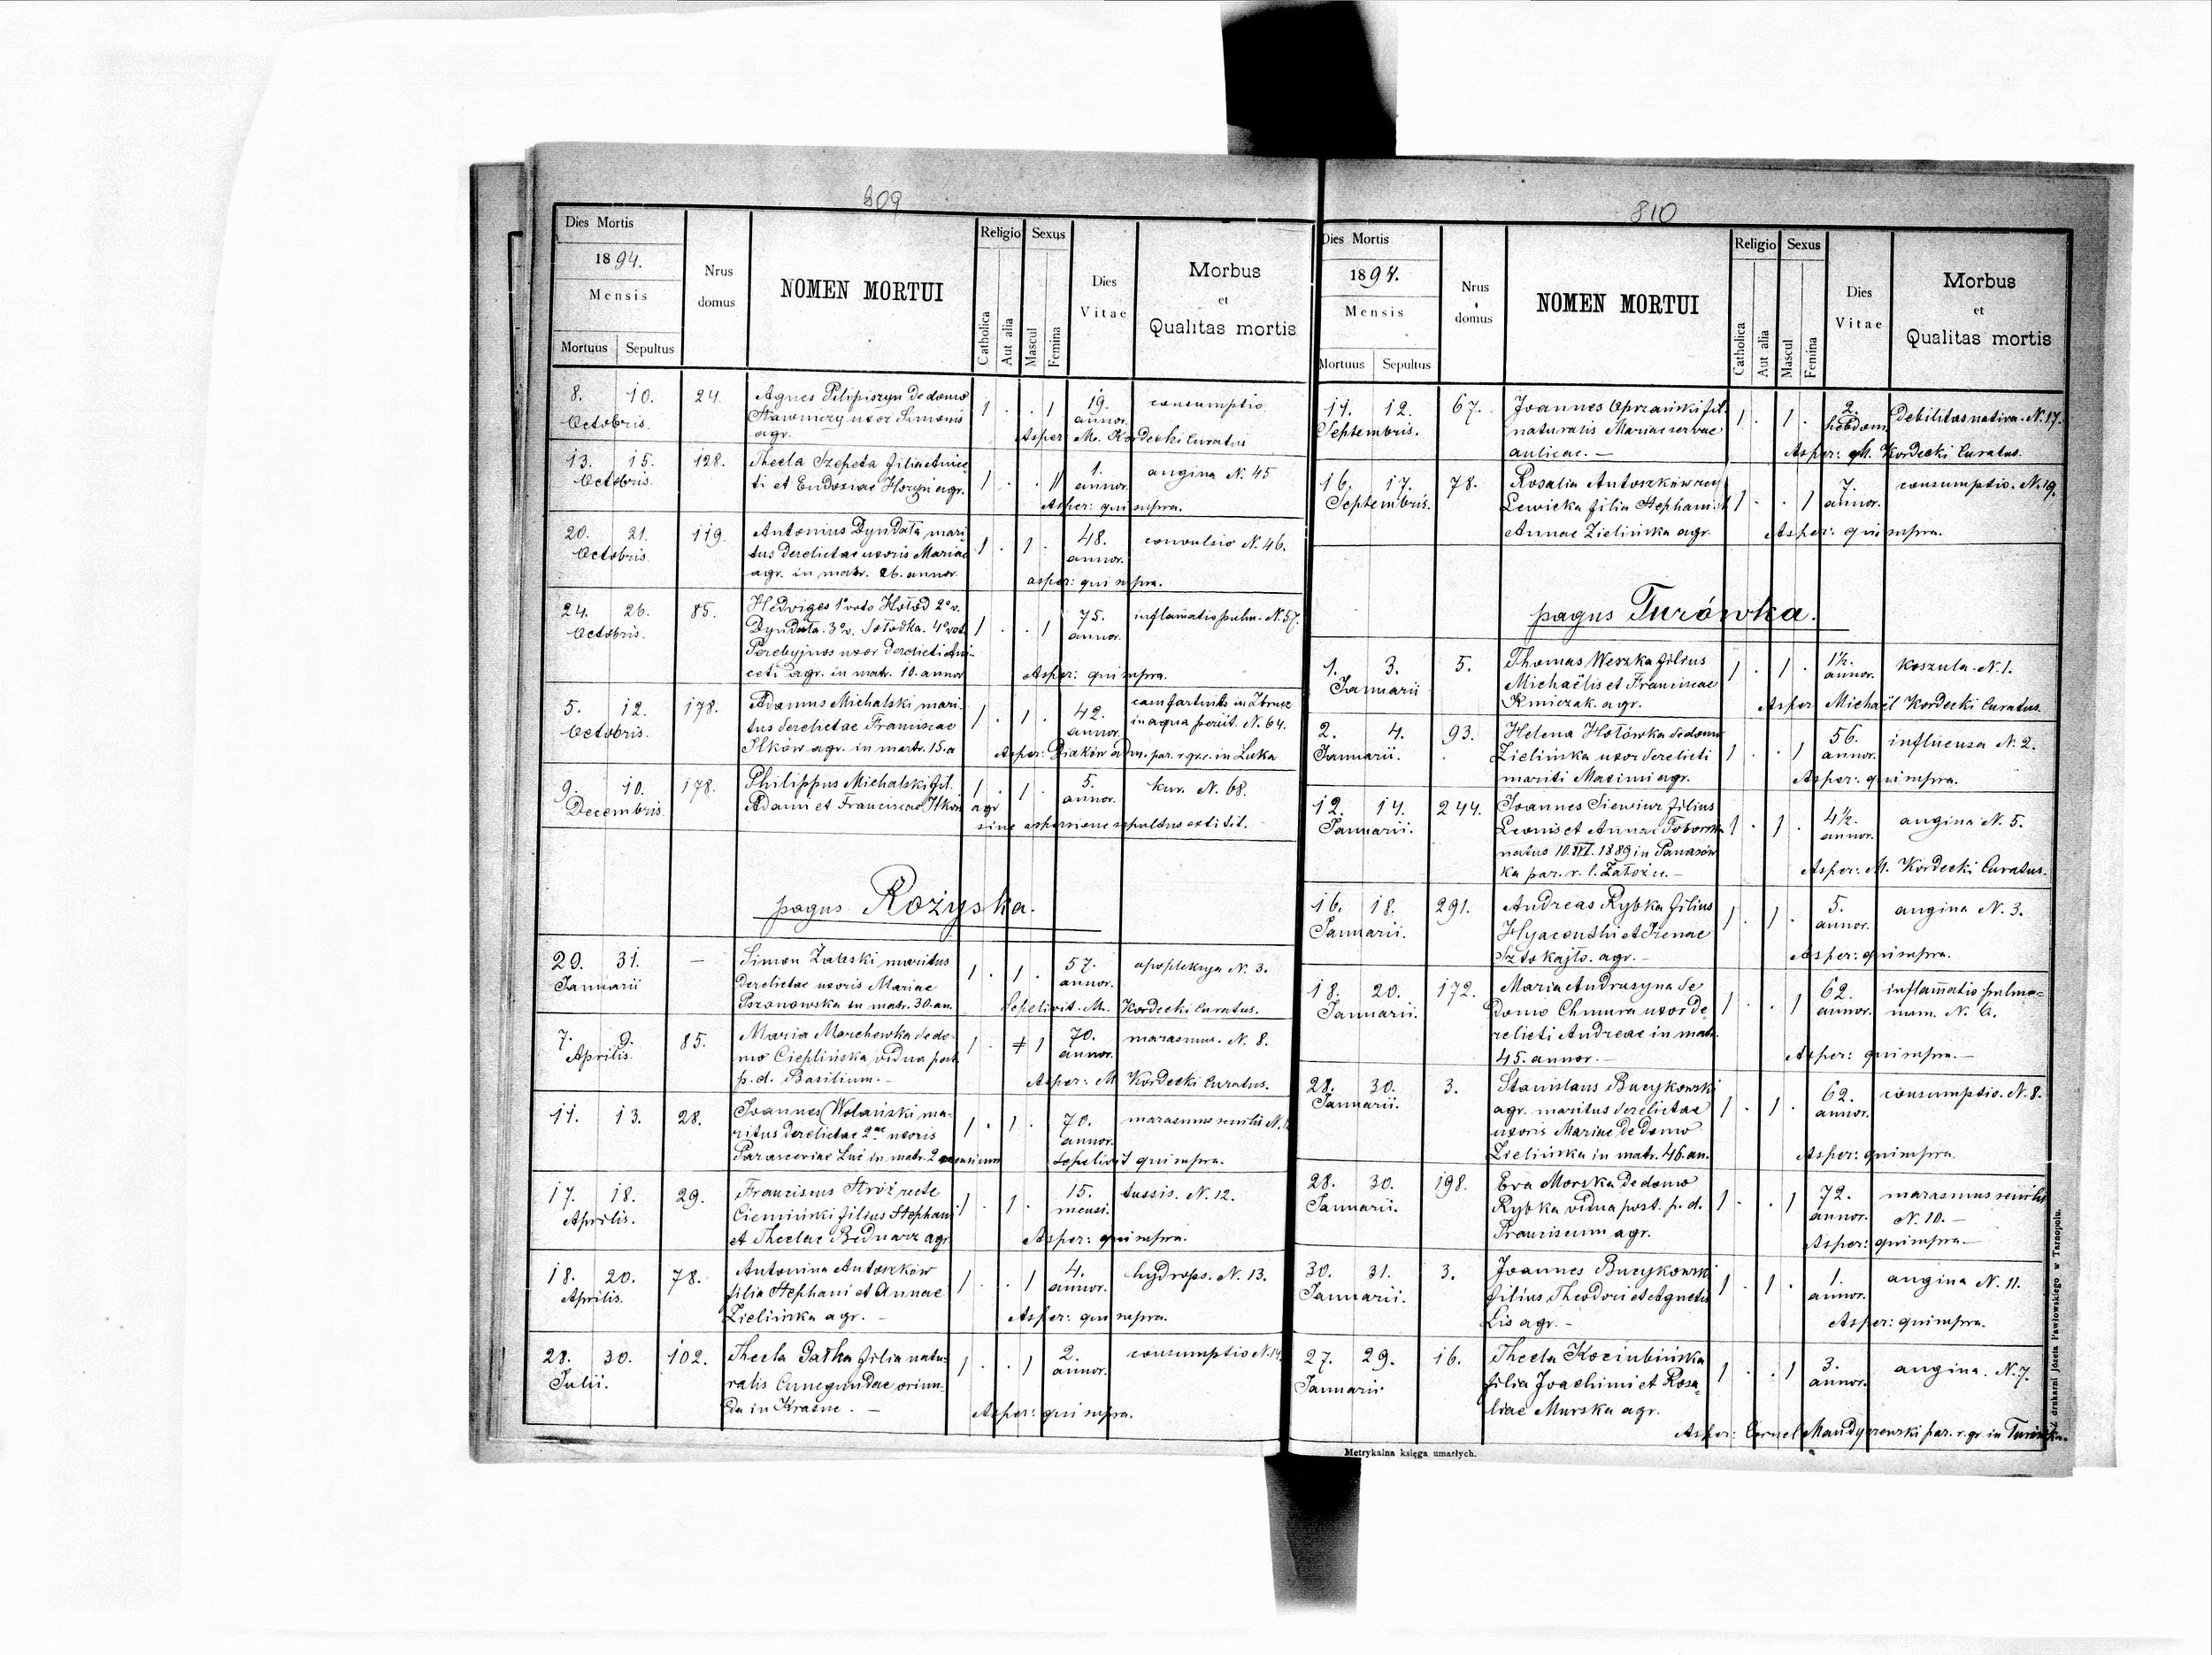 809
Dies Mortis
1894.
Mensis
Mortuus Sepultus
Nrus domus
NOMEN MORTUI
Religio
Catholica
Aut alia
Sexus
Mascul
Femina
Dies Vitae
Morbus et Qualitas mortis
8. 10. 24. Agnes Pilipiszyn de domo 1 . . 1 19. consumptio
Octobris. uxor Simonis annor.
agr. Asper M. Kordecki Curatus
13. 15. 128. Thecla Szepeta filia Anice 1 . . 1 1. angina N. 45
Octobris. ti et Eudoxiae Horyń agr. annor.
Asper: qui supra.
20. 21. 119. Antonius Dyndała mari 1 . 1 . 48. convulsio N. 46.
Octobris tus derelictae uxoris Mariae annor.
agr. in matr. 26. annor. asper: qui supra.
24. 26. 85. Hedviges 1º voto Hołod 2º v. 1 . . 1 75. inflamatio pulm. N. 57.
Octobris. Dyndała. 3º v. Sołodka. 4º vot. annor.
Perebyjnos uxor derelicti Ani-
ceti agr. in matr. 10. annor Asper: qui supra.
5. 12. 178. Adamus Michalski mari- 1 . 1 . 42. in Zbrucz
Octobris. tus derelictae Franciscae annor. in aqua periit. N. 64.
Ilków agr. in matr. 15. a Asper: Diaków adm. par. r. gr. in Luka
9. 10. 178. Philippus Michalski fil. 1 . 1 . 5. kur. N. 68.
Decembris. Adami et Franciscae Ilków agr annor.
sine aspersione sepultus extitit.
pagus Rożyska.
29. 31. — Simon Zaleski maritus 1 . 1 . 57. apopleksya N. 3.
Januarii derelictae uxoris Mariae annor.
Pszonowska in matr. 30. an. Sepelivit. M. Kordecki Curatus.
7. 9. 85. Maria Marchewka de do- 1 . 1 70. marasmus. N. 8.
Aprilis. mo Cieplińska vidua post annor.
p. d. Basilium. — Asper: M Kordecki Curatus.
11. 13. 28. Joannes Wolański ma- 1 . 1 . 70. marasmus senilis N.
ritus derelictae 2ae uxoris annor.
Parasceviae Luć in matr. 2 mensium Sepelivit qui supra.
17. 18. 29. Franciscus Stróż recte 1 . 1 . 15. tussis. N. 12.
Aprilis. Ciemiński filius Stephani mensi.
et Theclae Bednarz agr Asper: qui supra.
18. 20. 78. Antonina Antoszków 1 . . 1 4. hydrops. N. 13.
Aprilis. filia Stephani et Annae annor.
Zielińska agr. — Asper: qui supra.
28. 30. 102. Thecla Gałka filia natu- 1 . . 1 2. consumptio N. 14.
Julii. ralis Cunegundae oriun- annor.
da in Krasne. — Asper: qui supra.
810
Dies Mortis
1894.
Mensis
Mortuus Sepultus
Nrus domus
NOMEN MORTUI
Religio
Catholica
Aut alia
Sexus
Mascul
Femina
Dies Vitae
Morbus et Qualitas mortis
11. 12. 67. Joannes Oprzański fil. 1 . 1 . 2. Debilitas nativa. N. 17.
Septembris. naturalis Mariae servae hebdom.
aulicae. — Asper: M. Kordecki Curatus.
16. 17. 78. Rosalia Antoszków rcy 1 . . 1 7. consumptio. N. 19.
Septembris. Lewicka filia Stephani et annor.
Annae Zielińska agr. Asper: qui supra.
pagus Turówka.
1. 3. 5. Thomas Weszka filius 1 . 1 . 1½. koszula. N. 1.
Januarii Michaëlis et Franciscae annor.
Kmiczak. agr. Asper Michaël Kordecki Curatus.
2. 4. 93. Helena Hołówka de domo 1 . . 1 56. influenza N. 2.
Januarii. Zielińska uxor derelicti annor.
mariti Maximi agr. Asper: qui supra.
12. 14. 244. Joannes Siewiur filius 1 . 1 . 4½. angina N. 5.
Januarii. Leonis et Annae Toborska annor.
natus 10. XVI. 1889 in Panasów
ka par. r. l. Załoźce. — Asper: M. Kordecki Curatus.
16. 18. 291. Andreas Rybka filius 1 . 1 . 5. angina N. 3.
Januarii. Hyacenthi et Irenae annor.
Sztokajło. agr. — Asper: qui supra.
18. 20. 172. Maria Andrusyna de 1 . . 1 62. inflamatio pulmo-
Januarii. domo Chmura uxor de annor. num. N. 6.
relicti Andreae in matr.
45. annor. — Asper: qui supra. —
28. 30. 3. Stanislaus Bucykowski 1 . 1 . 62. consumptio. N. 8.
Januarii. agr. maritus derelictae annor.
uxoris Mariae de domo
Zielińska in matr. 46. an. Asper: qui supra.
28. 30. 198. Eva Morska de domo 1 . . 1 72. marasmus senilis
Januarii. Rybka vidua post. p. d. annor. N. 10. —
Franciscum agr. Asper: qui supra. —
30. 31. 3. Joannes Bucykowski 1 . 1 . 1. angina N. 11.
Januarii. filius Theodori et Agnetis annor.
Lis agr. — Asper: qui supra.
27. 29. 16. Thecla Kociubińska 1 . . 1 3. angina. N. 7.
Januarii filia Joachimi et Rosa- annor.
liae Murska agr.
Asper: Cornel Mandyczewski par. r. gr. in Turówka.
Metrykalna księga umarłych.
Z drukarni Józefa Pawłowskiego w Tarnopolu.